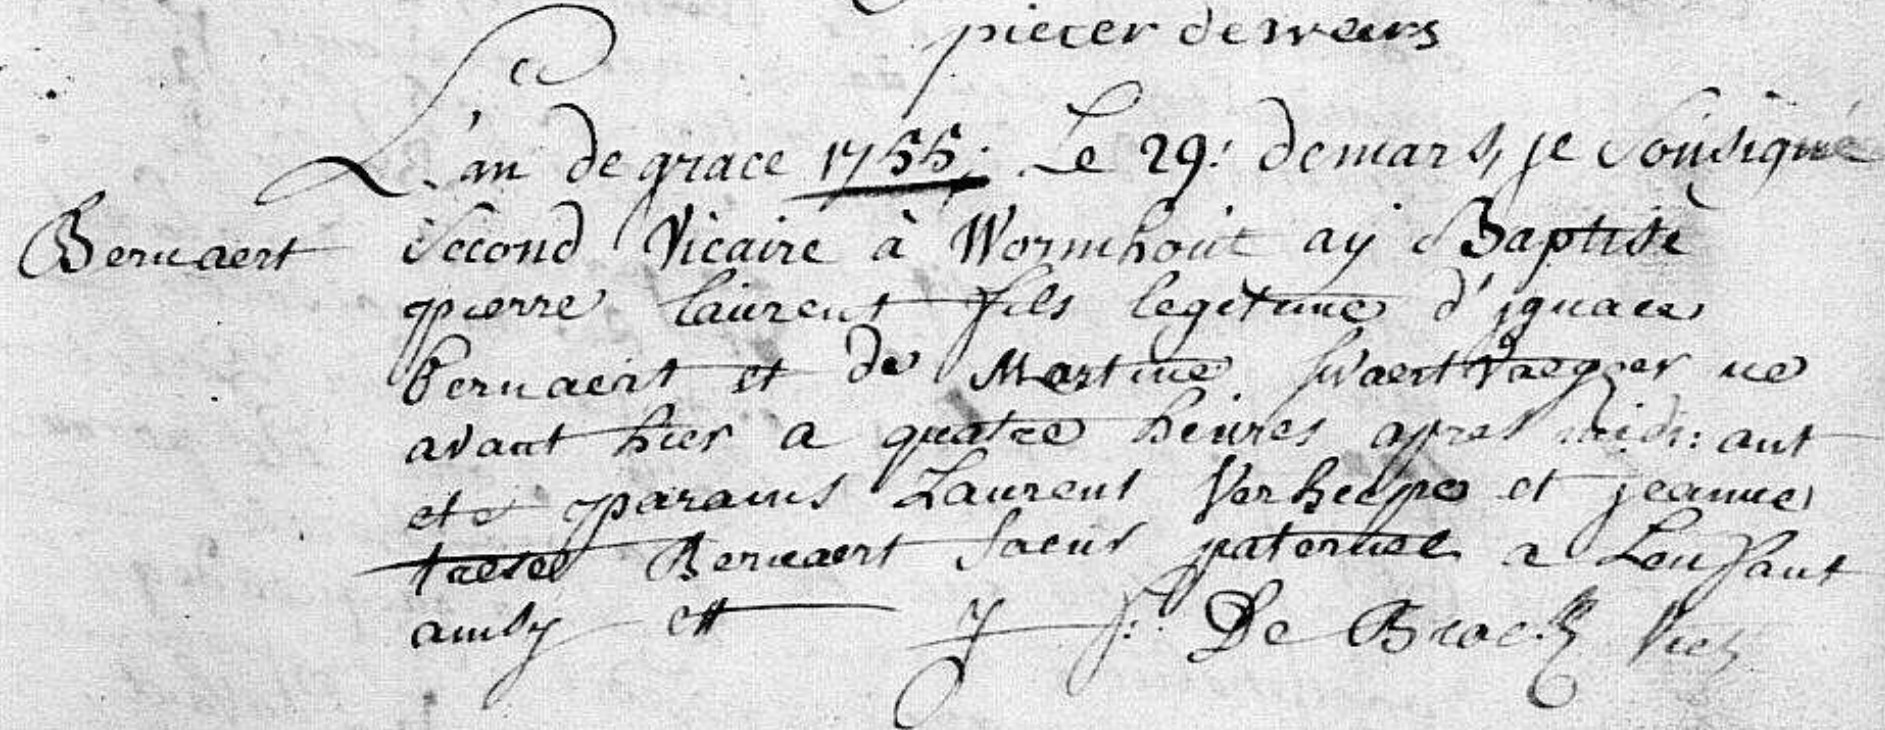 pieter de wears
L'an de grace 1755; Le 29: de mars, je sousigné
Bernaert second Vicaire à Wormhout ay Baptisé
pierre laurent fils legitime d'ignace
bernaert et de Martine swaertvaegher né
avant hier a quatre heures apres midi: ant
eté parains Laurent Verhiepe et jeanne
trese Bernaert saeur paternel a Lenfant
ainsy ett J F: De Brack Vic: